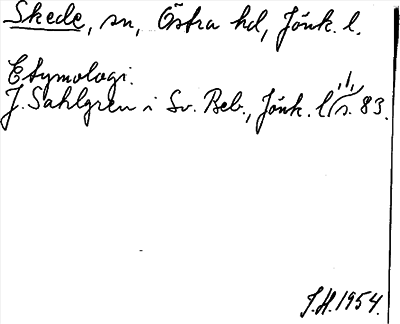 Skede, sn, Östra hd, Jönk. l.
Etymologi.
J. Sahlgren i Sv. Beb., Jönk. l, s. 83.
J.H. 1954.